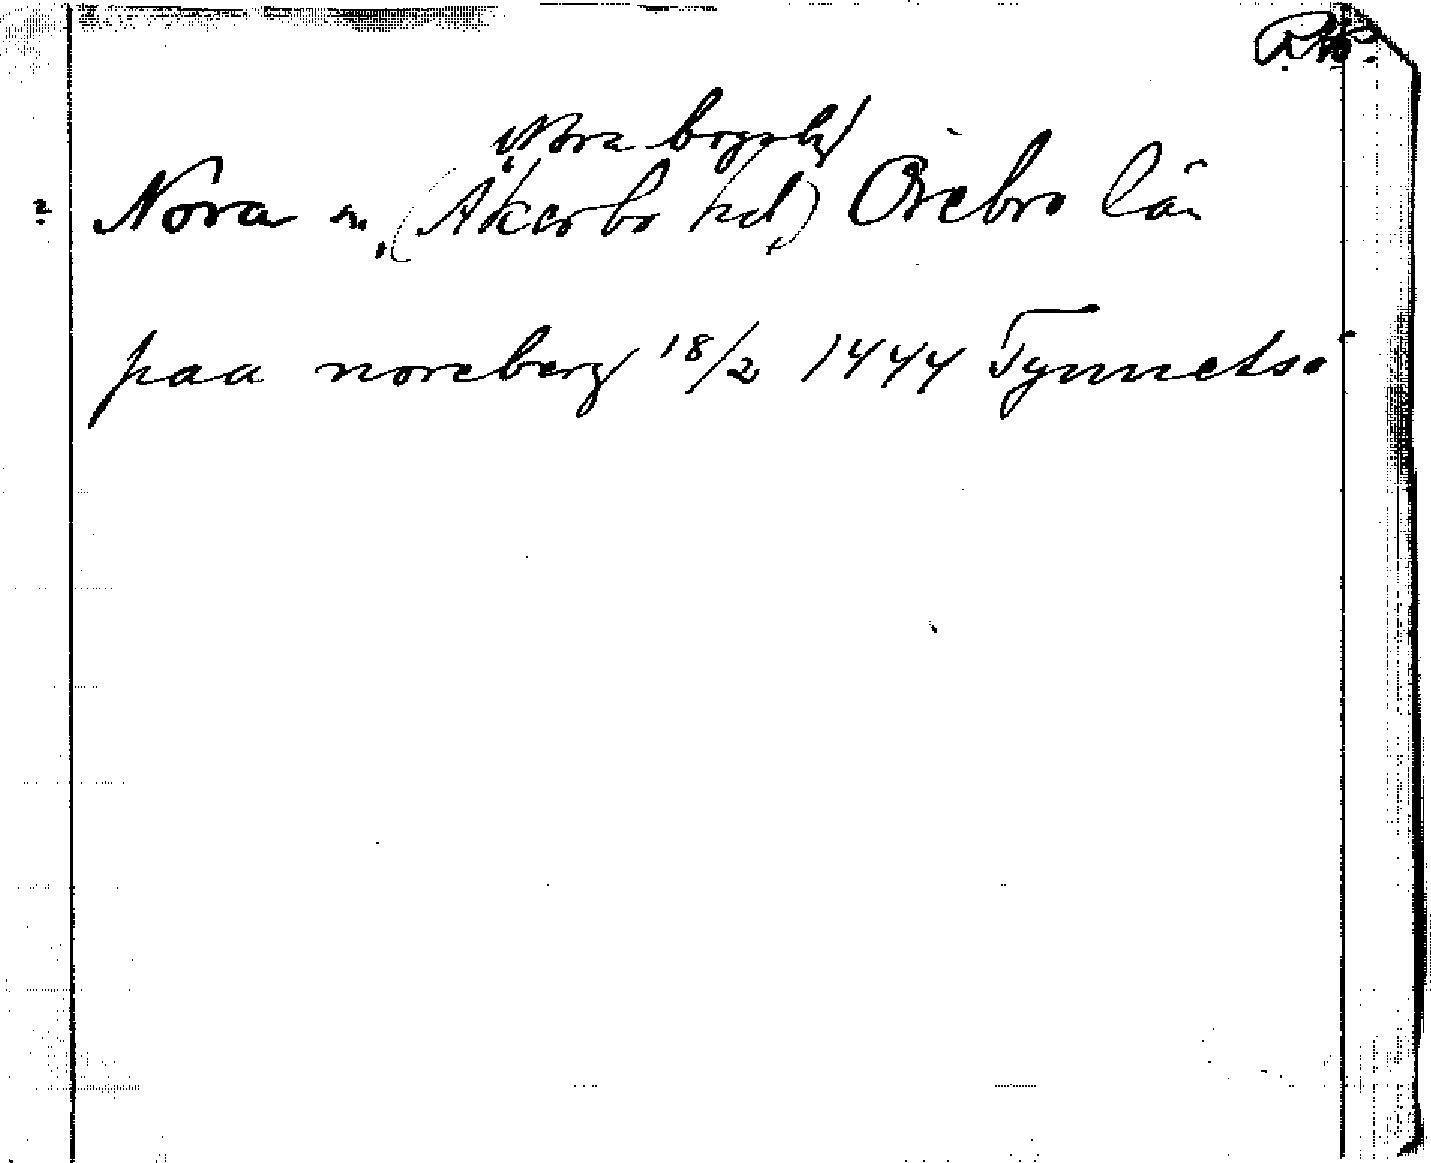 R.A.P.
Nora bergslg
? Nora sn, (Åkerbo hd,) Örebro län
paa noreberg 18/2 1444 Tynnelsö